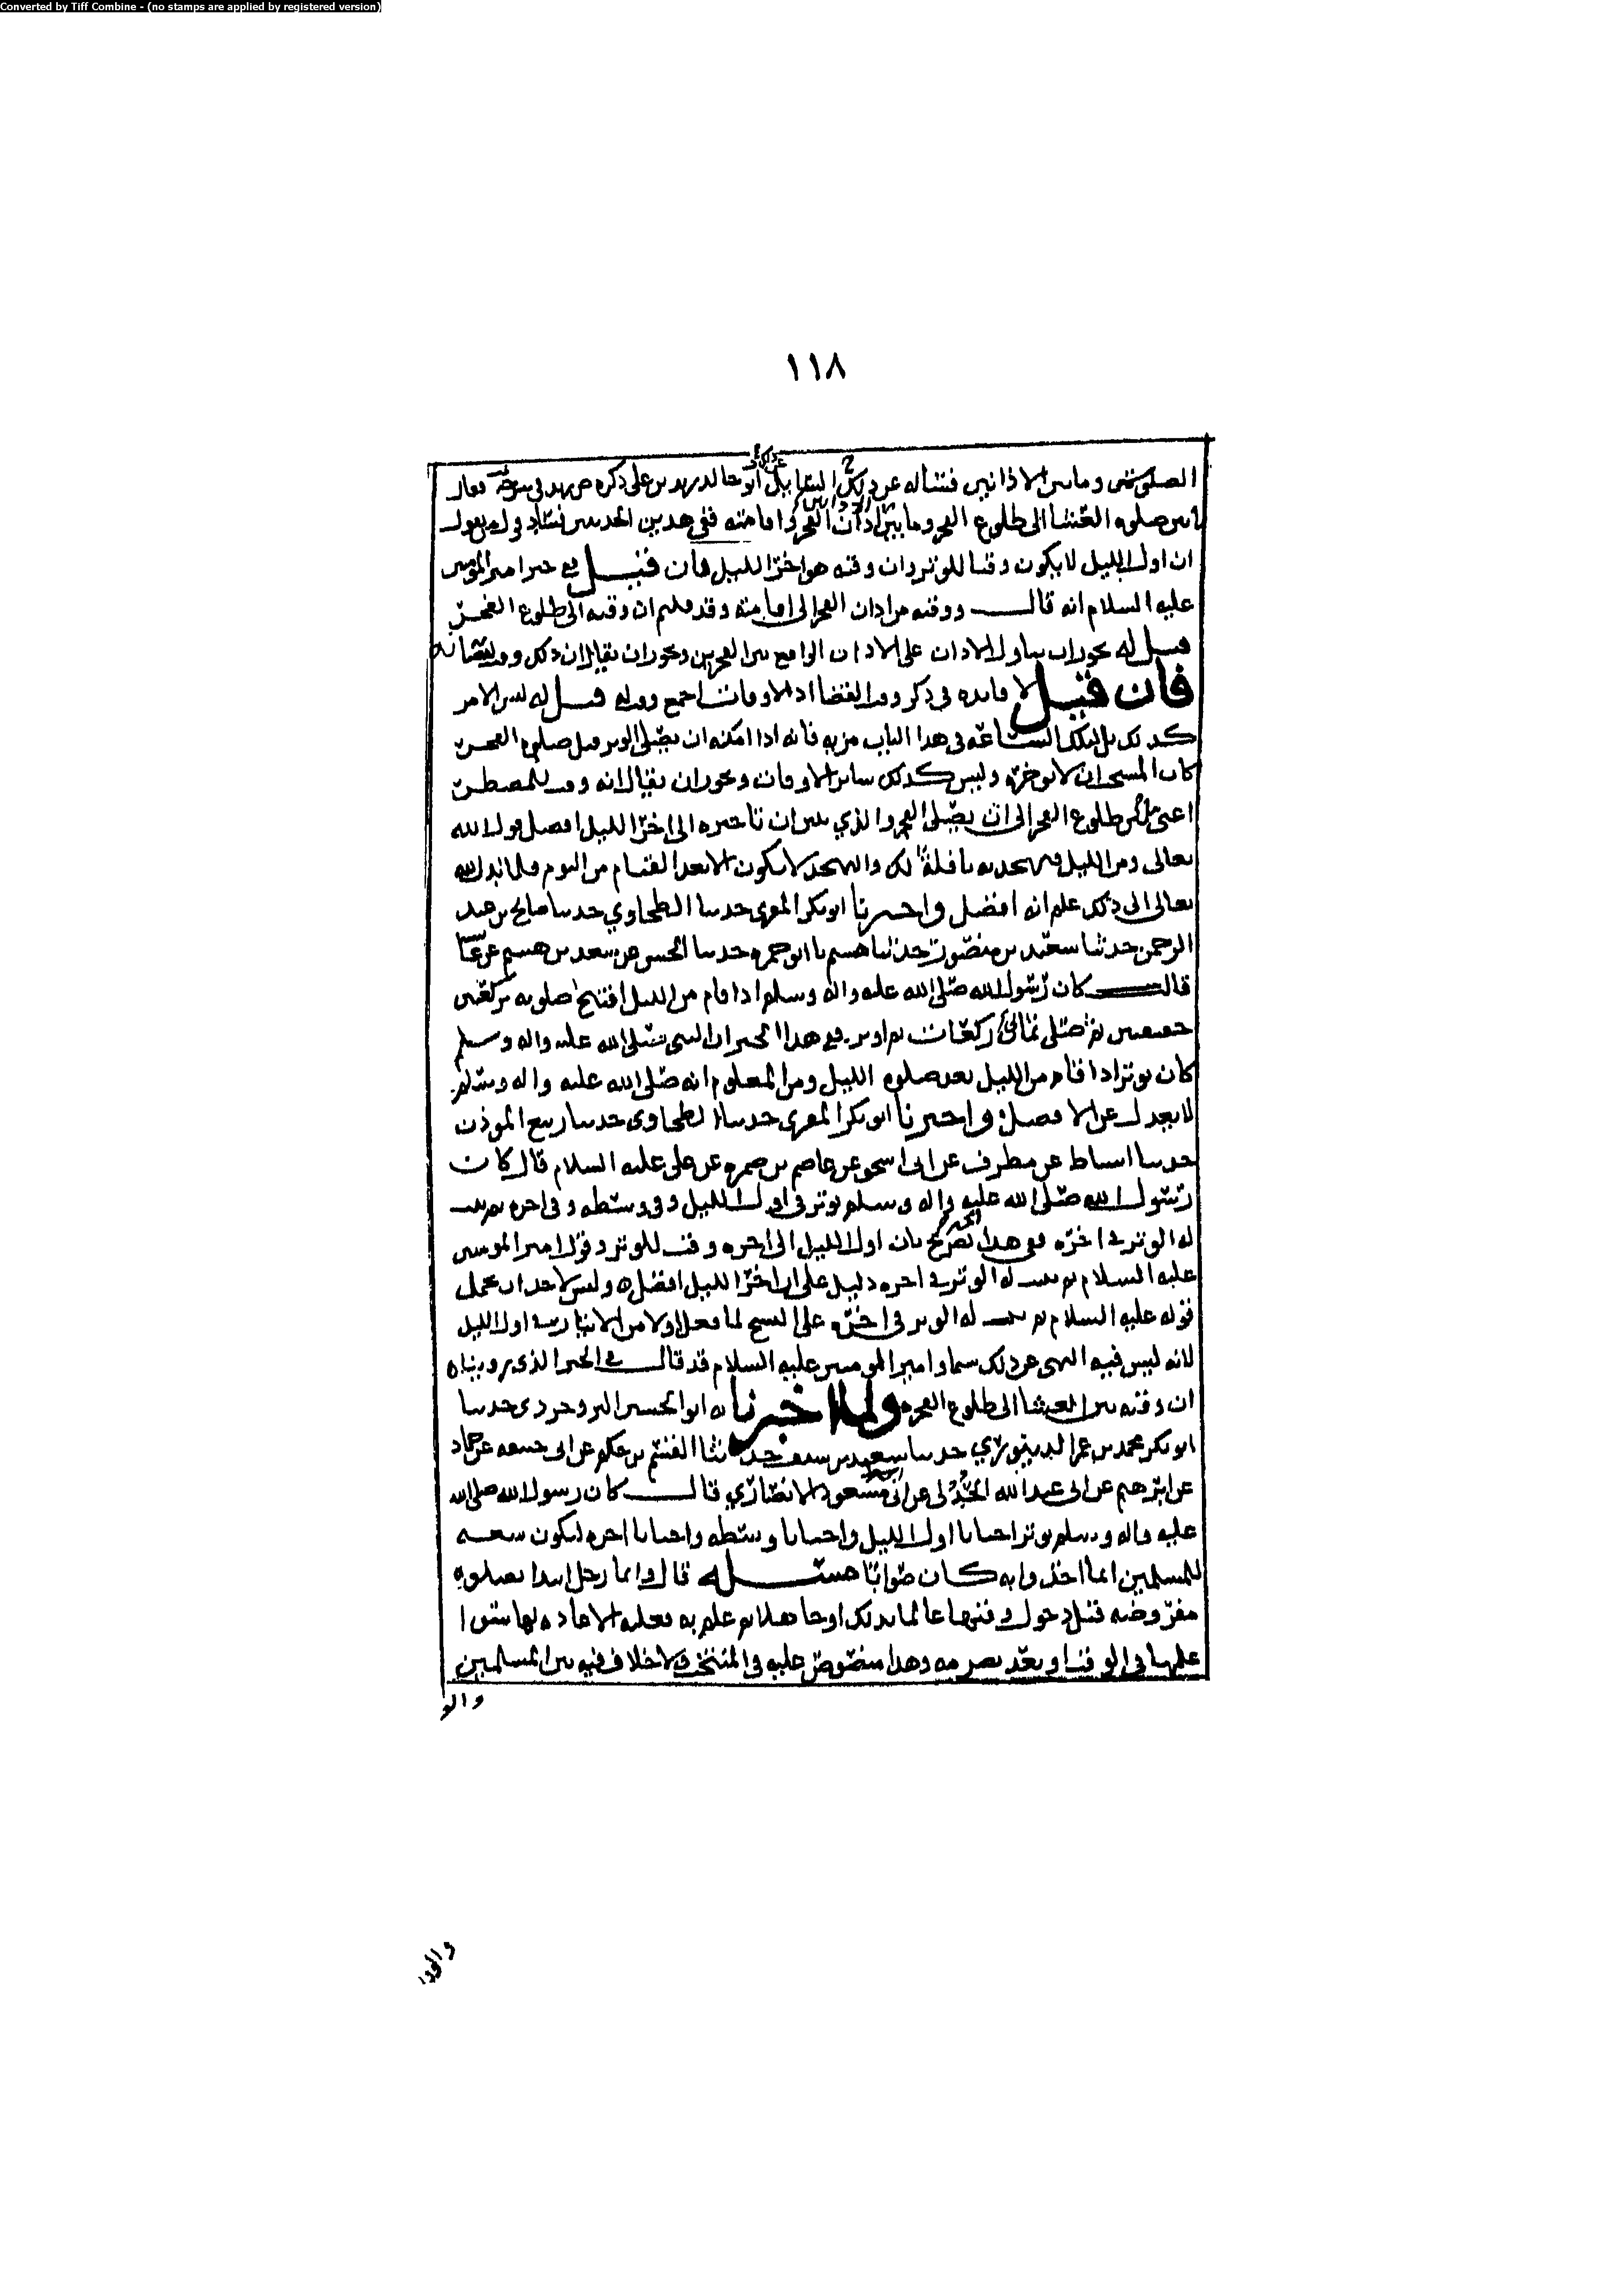 Converted by Tiff Combine - (no stamps are applied by registered version)
١١٨
وما بين الاذانين فسأله عن ذلك ابو خالد يزيد بن على ذكره فقال
ما بين صلوه العشا الى طلوع الفجر وما بين اذان الفجر واقامته ففى هذين الحديثين فساد قول من يقول
ان اول الليل لا يكون وقتا للوتر وان وقته هو اخر الليل فان قيل فى خبر امير المومنين
عليه السلام انه قال ووقته من اذان الفجر الى اقامته وقد قلتم ان وقته الى طلوع الفجر
قيل له يجوز ان يتاول الاذان على الاذان الواقع بين الفجرين ويجوز ان يقال ان ذلك وقت لقضائه
فان قيل لا فايده فى ذكر وقت القضا اذ الاوقات اجمع وقت له قيل له ليس الامر
كذلك بل لتلك الساعه فى هذا الباب مزيه فانه اذا امكنه ان يصلى الوتر قبل صلوه الفجر
كان المستحب ان لا يوخره وليس كذلك ساير الاوقات ويجوز ان يقال انه وقت للمضطر
اعنى من طلوع الفجر الى ان يصلى الفجر والذي يبين ان تاخيره الى اخر الليل افضل قول الله
تعالى ومن الليل فتهجد به نافلة لك والتهجد لا يكون الا بعد القيام من النوم فلما ندب الله
تعالى الى ذلك علم انه افضل واخبرنا ابو بكر المقرى حدثنا الطحاوي حدثنا صالح بن عبد
الرحمن حدثنا سعيد بن منصور حدثنا هشيم نا ابو حمره حدثنا الحسن عن سعد بن هشيم عن
قال كان رسول الله صلى الله عليه واله وسلم اذا قام من الليل افتتح صلوته بركعتين
خفيفتين ثم صلى ثمانى ركعات ثم اوتر ففى هذا الخبر ان النبى صلى الله عليه واله وسلم
كان يوتر اذا قام من الليل بعد صلوه الليل ومن المعلوم انه صلى الله عليه واله وسلم
لا يعدل عن الافضل واخبرنا ابو بكر المقرى حدثنا الطحاوى حدثنا ربيع الموذن
حدثنا اسباط عن مطرف عن ابى اسحق عن عاصم بن ضمره عن على عليه السلام قال كان
رسول الله صلى الله عليه واله وسلم يوتر فى اول الليل وفى وسطه وفى اخره ثم ثبت
له الوتر فى اخره ففى هذا الخبر تصريح بان اول الليل الى اخره وقت للوتر وقول امير المومنين
عليه السلام ثم ثبت له الوتر فى اخره دليل على ان اخر الليل افضل وليس لاحد ان يحمل
قوله عليه السلام ثم ثبت له الوتر فى اخره على النسخ لما فعل اولا من الايتار فى اول الليل
لانه ليس فيه النهى عن ذلك سيما وامير المومنين عليه السلام قد قال فى الخبر الذى رويناه
ان وقته من العشا الى طلوع الفجر ولما اخبرنا به ابو الحسين البروجردى حدثنا
ابو بكر محمد بن عمر الدينوري حدثنا سعيد بن حدثنا القسم بن حكم عن ابى حنيفه عن حماد
عن ابرهيم عن ابى عبد الله الجدلى عن ابى مسعود الانصاري قال كان رسول الله صلى الله
عليه واله وسلم يوتر احيانا اول الليل واحيانا وسطه واحيانا اخره ليكون سعه
للمسلمين ايما اخذوا به كان صوابا مسئله قال وايما رجل ابتدا بصلوه
مفروضه قبل دخول وقتها عالما بذلك او جاهلا ثم علم به فعليه الاعاده لها سوا
علم بها فى الوقت او بعد تصرمه وهذا منصوص عليه فى المنتخب ولا خلاف فيه بين المسلمين
والو